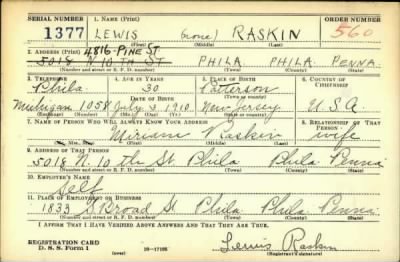 SERIAL NUMBER 1. NAME (Print) ORDER NUMBER
1377 LEWIS (none) RASKIN 560
(First) (Middle) (Last)
4816-PINE ST
2. ADDRESS (Print)
5018 N. 10 TH ST PHILA PHILA. PENNA.
(Number and street or R. F. D. number) (Town) (County) (State)
3. TELEPHONE 4. AGE IN YEARS 5. PLACE OF BIRTH 6. COUNTRY OF CITIZENSHIP
Phila 30 Patterson
DATE OF BIRTH (Town or county)
Michigan 1058 July 3 1910 New Jersey U.S.A
(Exchange) (Number) (Mo.) (Day) (Yr.) (State or country)
7. NAME OF PERSON WHO WILL ALWAYS KNOW YOUR ADDRESS 8. RELATIONSHIP OF THAT PERSON
Miriam Raskin wife
(Mr., Mrs., Miss) (First) (Middle) (Last)
9. ADDRESS OF THAT PERSON
5018 N. 10 th St Phila Phila Penna
(Number and street or R. F. D. number) (Town) (County) (State)
10. EMPLOYER'S NAME
Self
11. PLACE OF EMPLOYMENT OR BUSINESS
1833 S Broad St Phila Phila Penna
(Number and street or R. F. D. number) (Town) (County) (State)
I AFFIRM THAT I HAVE VERIFIED ABOVE ANSWERS AND THAT THEY ARE TRUE.
REGISTRATION CARD
D. S. S. Form 1 (over) 16-17105 Lewis Raskin
(Registrant's signature)